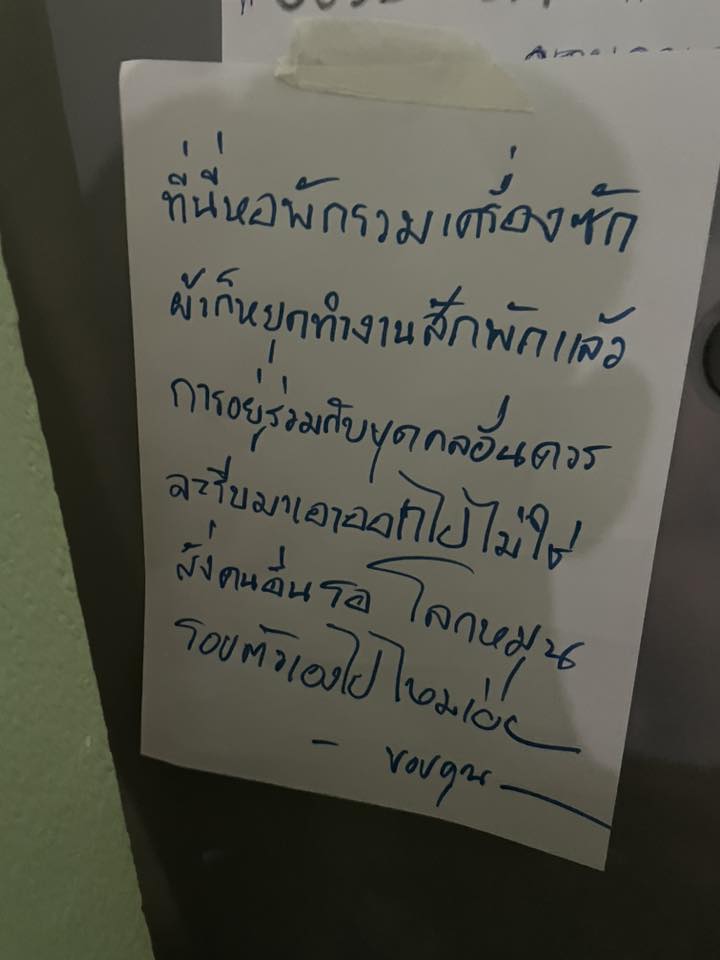 ที่นี่หอพักรวมเครื่องซัก
ผ้าก็หยุดทำงานสักพักแล้ว
การอยู่ร่วมกับบุคคลอื่นควร
จะรีบมาเอาออกไปไม่ใช่
สั่งคนอื่นรอ โลกหมุน
รอบตัวเองไปไหมเอ่ย
- ขอบคุณ -